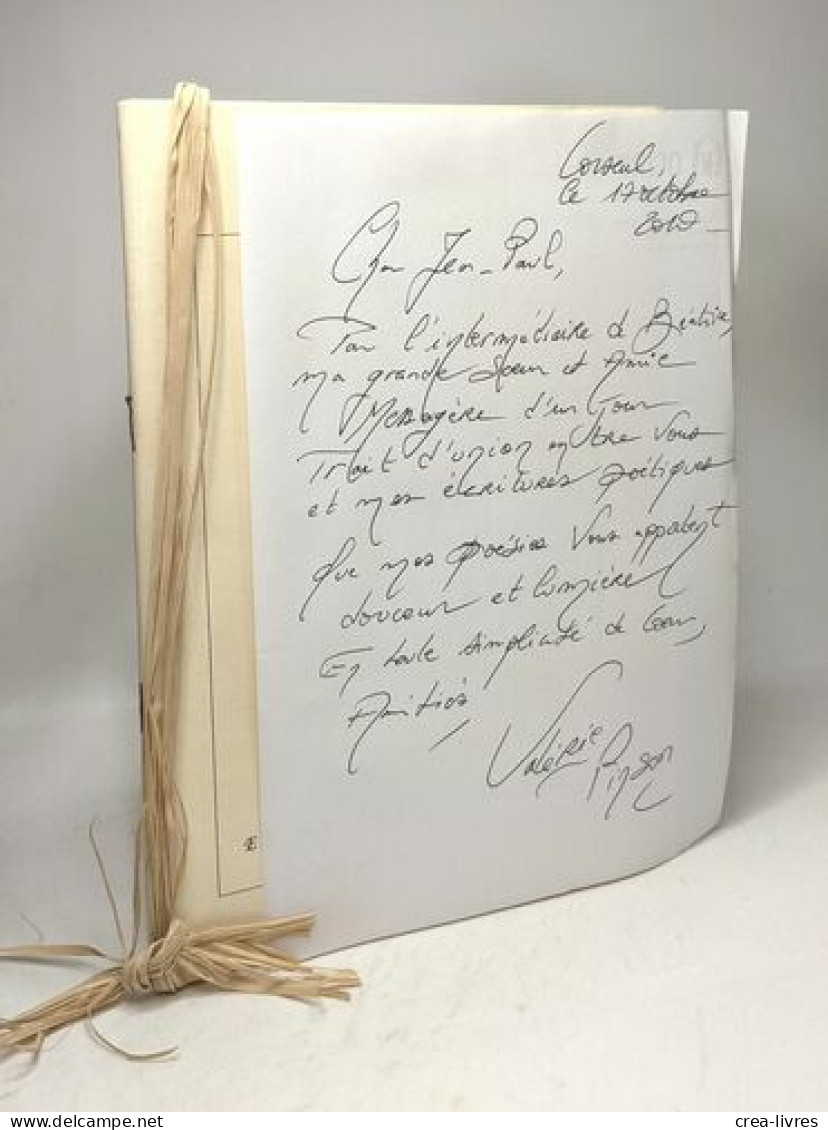 Corseul,
le 17 octobre
Cher Jean-Paul,
Par l'intermédiaire de Béatrice,
ma grande Soeur et Amie
Messagère d'un Jour
Trait d'union entre Vous
et mes écritures poétiques
Que mes poésies Vous apportent
douceur et lumière
En toute simplicité de Coeur,
Amitiés,
Valérie Pinson
E
delcampe.net
crea-livres